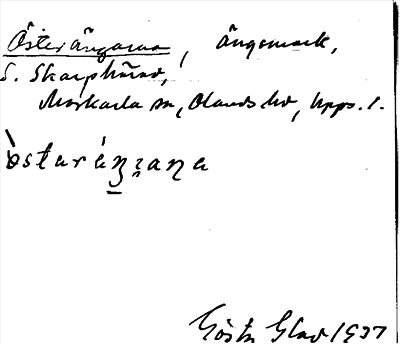 Österängarna, Ängsmark,
S. Skarphärad,
Morkarla sn, Olands hd, Upps. l.
òstarȧŋ̱ɩaŋa
Gösta Glad 1937